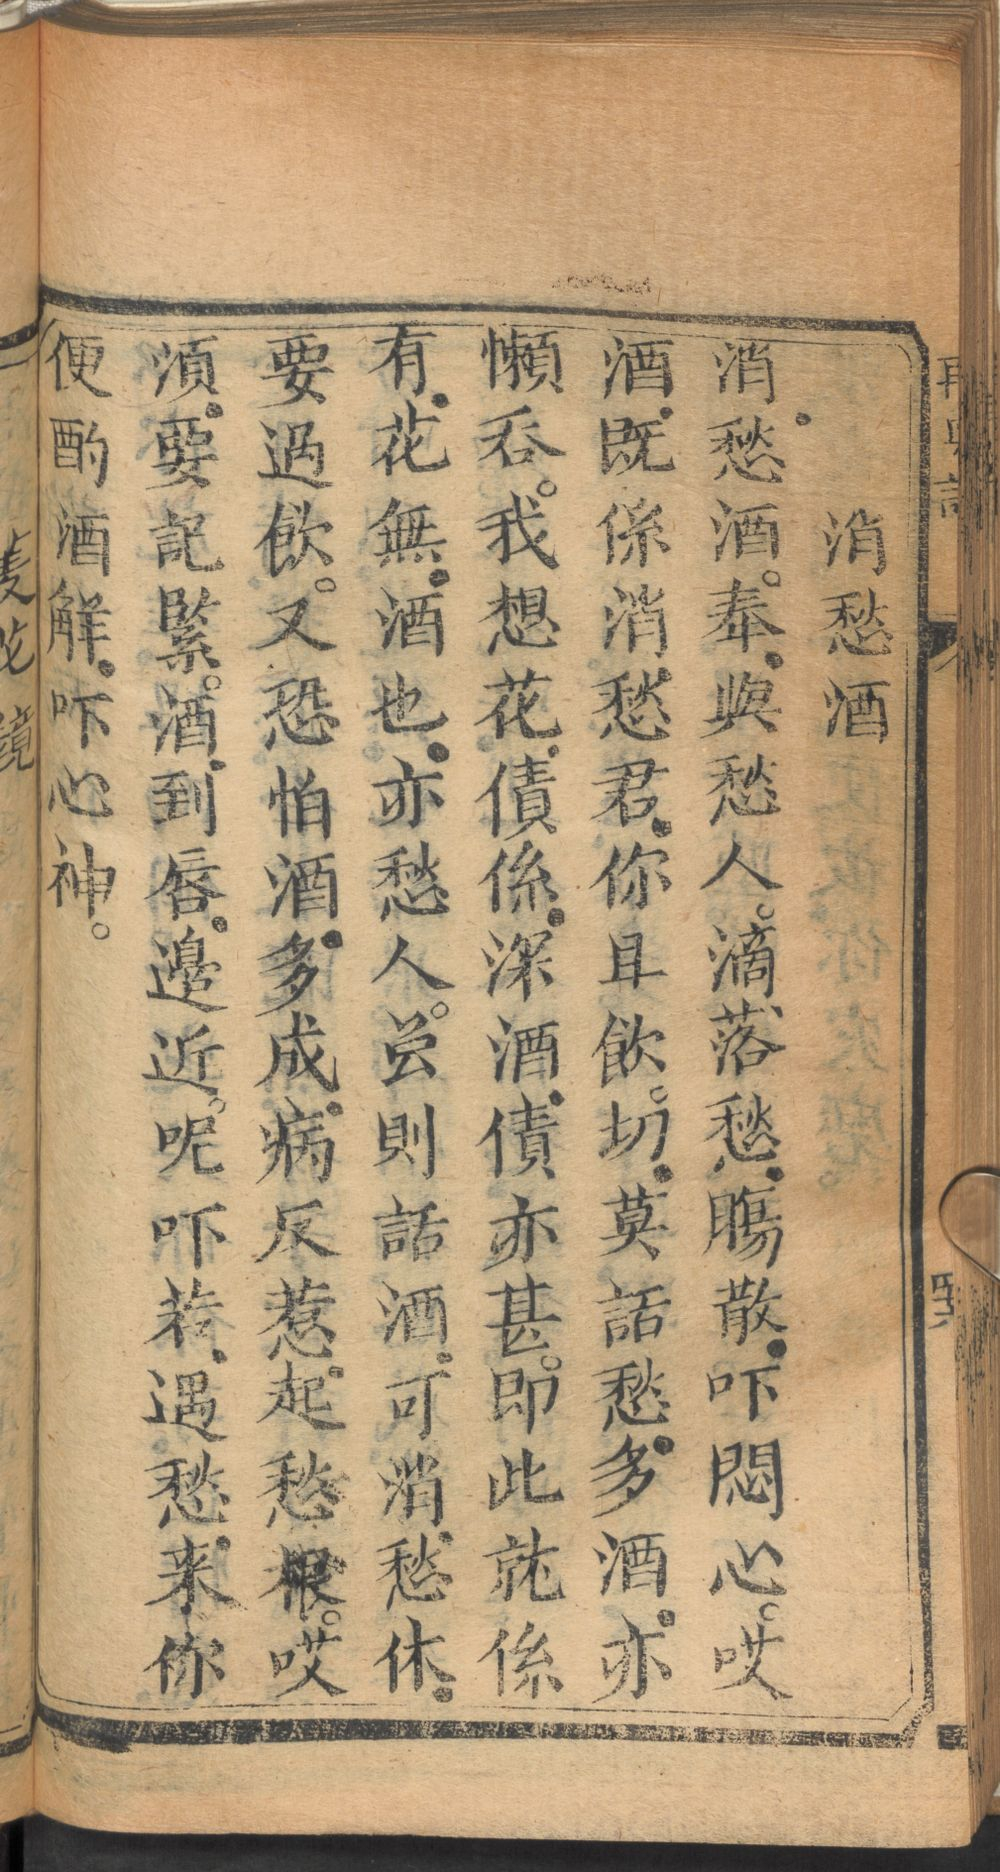 消愁酒
消愁酒。奉與愁人。滴落愁腸散吓悶心。哎
酒既係消愁君你且飲。切莫話愁多酒亦
懶吞。我想花債係深酒債亦甚。即此就係
有花無酒也亦愁人。虽則話酒可消愁休
要過飲。又恐怕酒多成病反惹起愁根。哎
須要記緊。酒到唇邊近。呢吓若遇愁来你
便酌酒解吓心神。